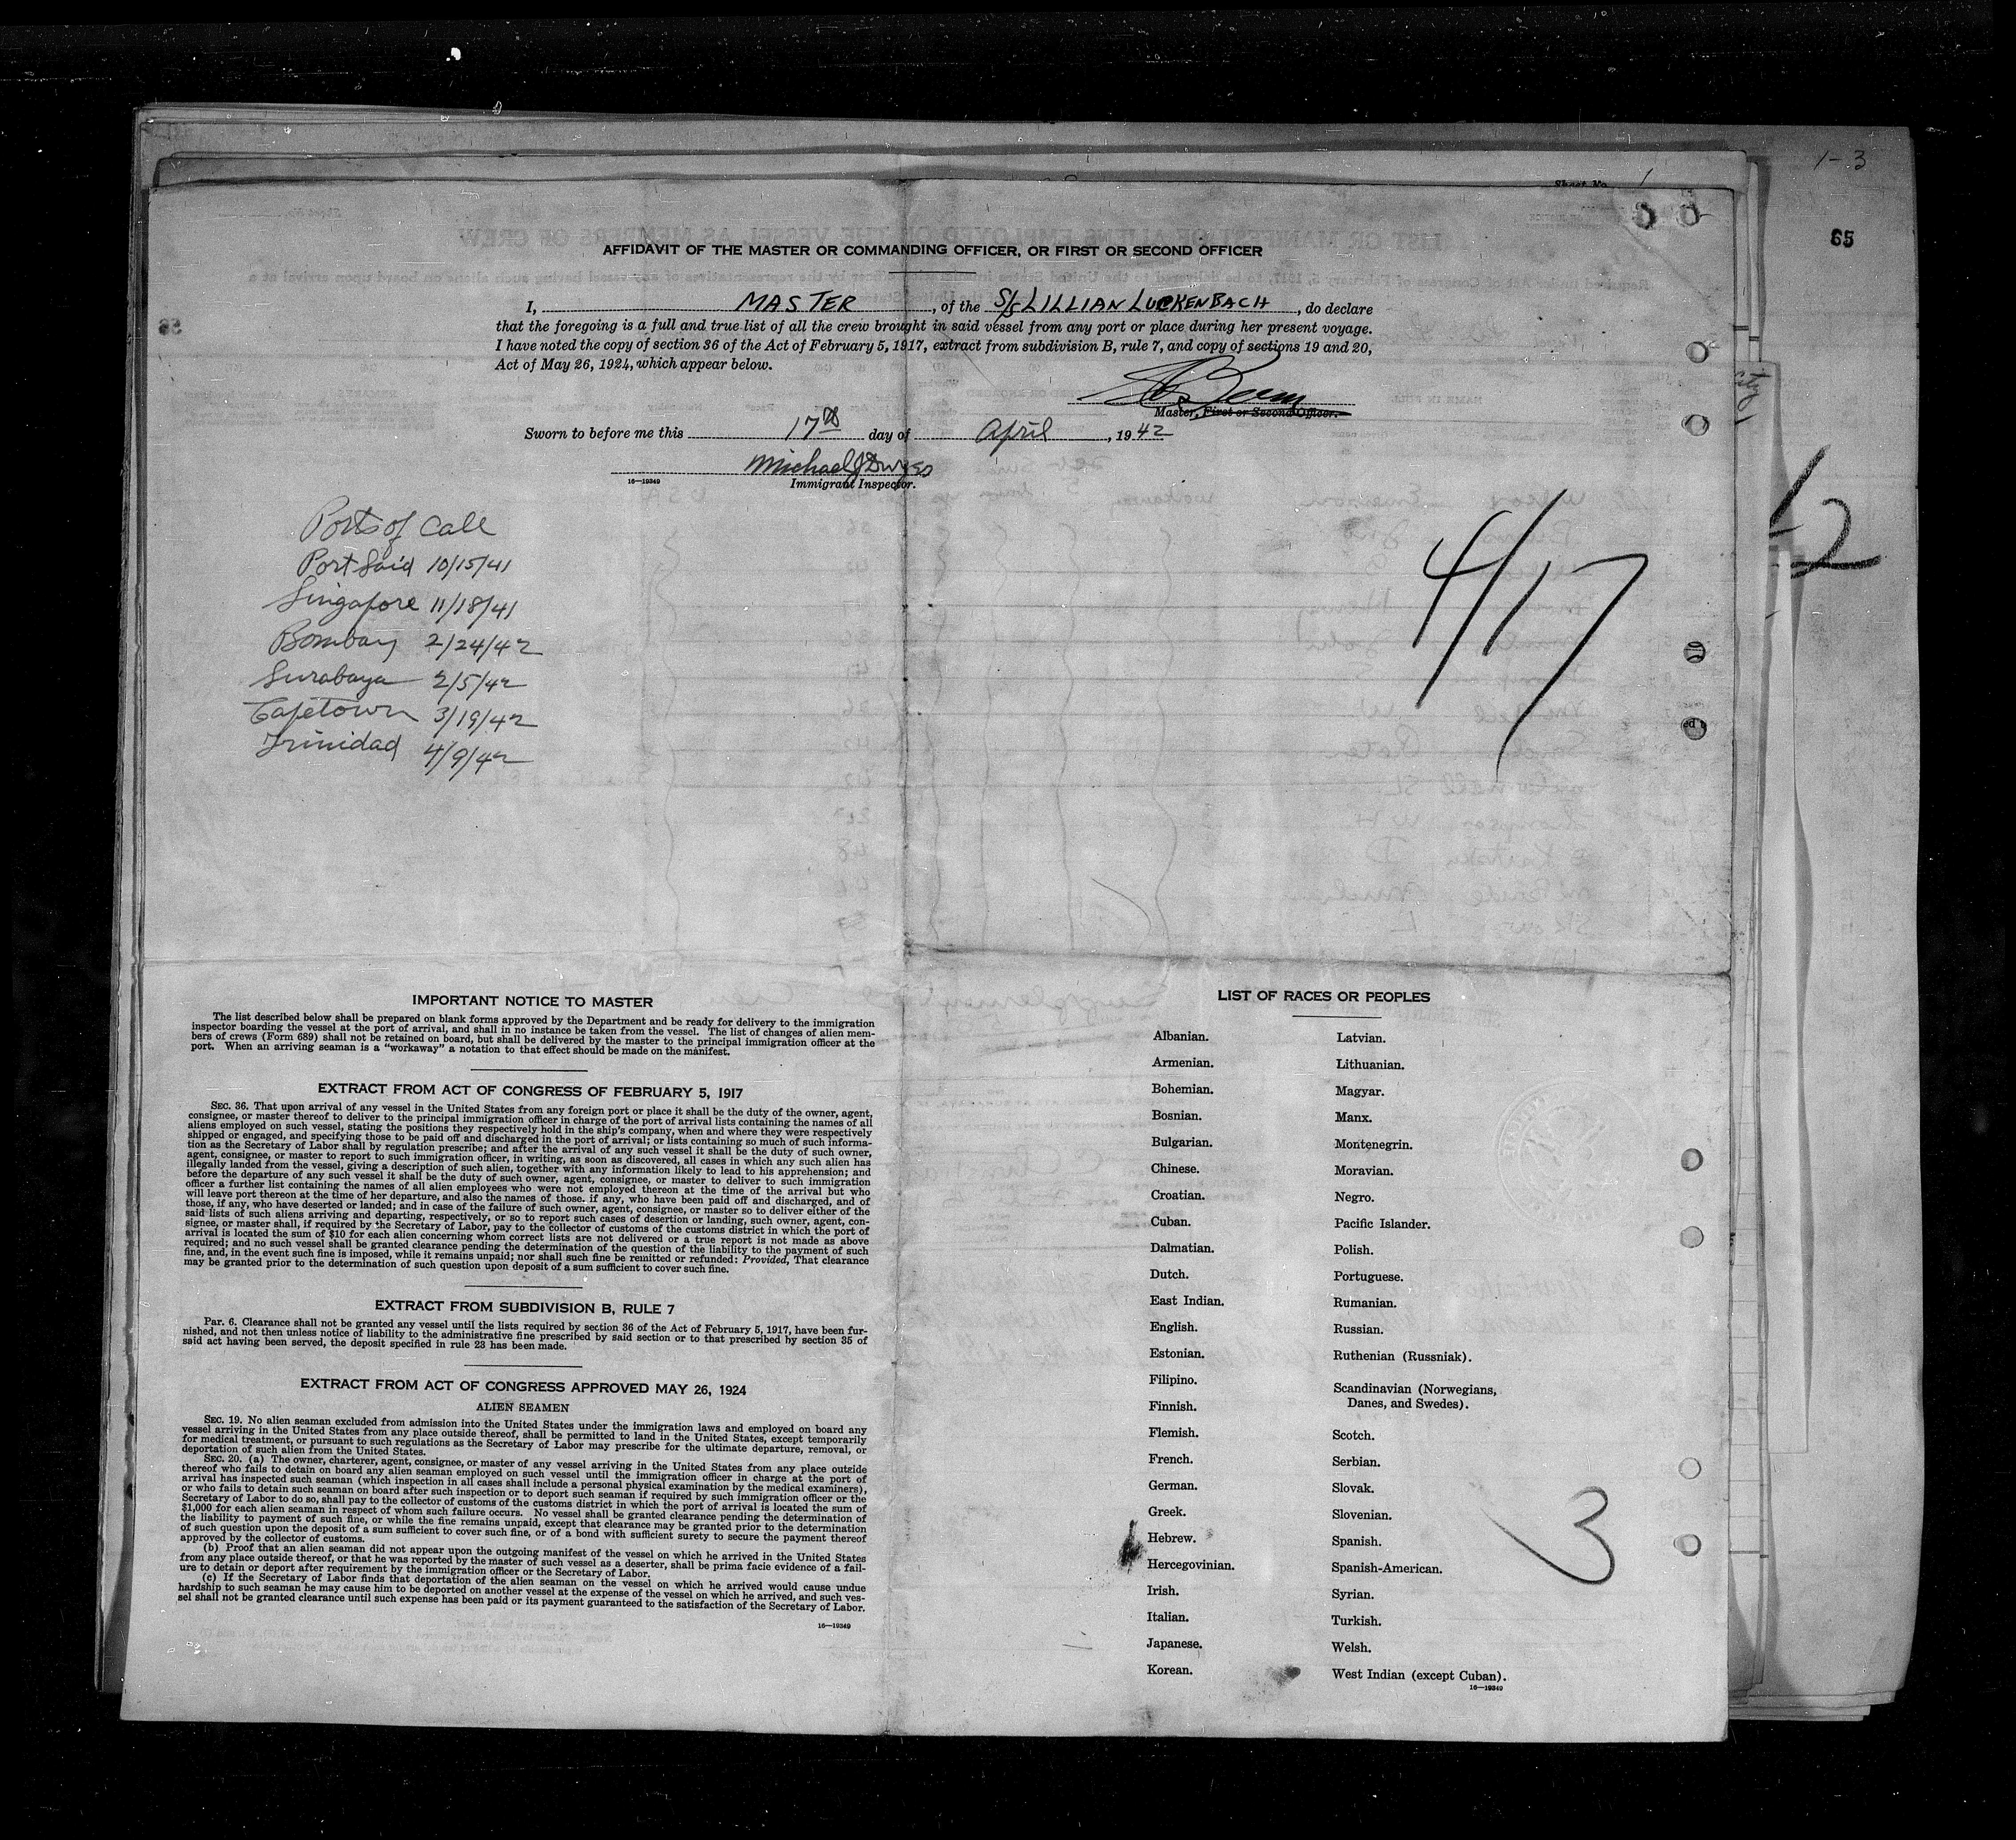 1-3
Sheet No. 1
65
AFFIDAVIT OF THE MASTER OR COMMANDING OFFICER, OR FIRST OR SECOND OFFICER
I, MASTER, of the S/S LILLIAN LUCKENBACH, do declare
that the foregoing is a full and true list of all the crew brought in said vessel from any port or place during her present voyage.
I have noted the copy of section 36 of the Act of February 5, 1917, extract from subdivision B, rule 7, and copy of sections 19 and 20,
Act of May 26, 1924, which appear below.
Master, First or Second Officer.
Sworn to before me this 17th day of April, 1942
Michael J
16—19349 Immigrant Inspector.
City
12
Ports of Call
Port Said 10/15/41
Singapore 11/18/41
Bombay 2/24/42
Surabaya 2/5/42
Capetown 3/19/42
Trinidad 4/9/42
4/17
IMPORTANT NOTICE TO MASTER
The list described below shall be prepared on blank forms approved by the Department and be ready for delivery to the immigration
inspector boarding the vessel at the port of arrival, and shall in no instance be taken from the vessel. The list of changes of alien mem-
bers of crews (Form 689) shall not be retained on board, but shall be delivered by the master to the principal immigration officer at the
port. When an arriving seaman is a "workaway" a notation to that effect should be made on the manifest.
EXTRACT FROM ACT OF CONGRESS OF FEBRUARY 5, 1917
SEC. 36. That upon arrival of any vessel in the United States from any foreign port or place it shall be the duty of the owner, agent,
consignee, or master thereof to deliver to the principal immigration officer in charge of the port of arrival lists containing the names of all
aliens employed on such vessel, stating the positions they respectively hold in the ship's company, when and where they were respectively
shipped or engaged, and specifying those to be paid off and discharged in the port of arrival; or lists containing so much of such informa-
tion as the Secretary of Labor shall by regulation prescribe; and after the arrival of any such vessel it shall be the duty of such owner,
agent, consignee, or master to report to such immigration officer, in writing, as soon as discovered, all cases in which any such alien has
illegally landed from the vessel, giving a description of such alien, together with any information likely to lead to his apprehension; and
before the departure of any such vessel it shall be the duty of such owner, agent, consignee, or master to deliver to such immigration
officer a further list containing the names of all alien employees who were not employed thereon at the time of the arrival but who
will leave port thereon at the time of her departure, and also the names of those. if any, who have been paid off and discharged, and of
those, if any, who have deserted or landed; and in case of the failure of such owner, agent, consignee, or master so to deliver either of the
said lists of such aliens arriving and departing, respectively, or so to report such cases of desertion or landing, such owner, agent, con-
signee, or master shall, if required by the Secretary of Labor, pay to the collector of customs of the customs district in which the port of
arrival is located the sum of $10 for each alien concerning whom correct lists are not delivered or a true report is not made as above
required; and no such vessel shall be granted clearance pending the determination of the question of the liability to the payment of such
fine, and, in the event such fine is imposed, while it remains unpaid; nor shall such fine be remitted or refunded: Provided, That clearance
may be granted prior to the determination of such question upon deposit of a sum sufficient to cover such fine.
EXTRACT FROM SUBDIVISION B, RULE 7
Par. 6. Clearance shall not be granted any vessel until the lists required by section 36 of the Act of February 5, 1917, have been fur-
nished, and not then unless notice of liability to the administrative fine prescribed by said section or to that prescribed by section 35 of
said act having been served, the deposit specified in rule 23 has been made.
EXTRACT FROM ACT OF CONGRESS APPROVED MAY 26, 1924
ALIEN SEAMEN
SEC. 19. No alien seaman excluded from admission into the United States under the immigration laws and employed on board any
vessel arriving in the United States from any place outside thereof, shall be permitted to land in the United States, except temporarily
for medical treatment, or pursuant to such regulations as the Secretary of Labor may prescribe for the ultimate departure, removal, or
deportation of such alien from the United States.
SEC. 20. (a) The owner, charterer, agent, consignee, or master of any vessel arriving in the United States from any place outside
thereof who fails to detain on board any alien seaman employed on such vessel until the immigration officer in charge at the port of
arrival has inspected such seaman (which inspection in all cases shall include a personal physical examination by the medical examiners),
or who fails to detain such seaman on board after such inspection or to deport such seaman if required by such immigration officer or the
Secretary of Labor to do so, shall pay to the collector of customs of the customs district in which the port of arrival is located the sum of
$1,000 for each alien seaman in respect of whom such failure occurs. No vessel shall be granted clearance pending the determination of
the liability to payment of such fine, or while the fine remains unpaid, except that clearance may be granted prior to the determination
of such question upon the deposit of a sum sufficient to cover such fine, or of a bond with sufficient surety to secure the payment thereof
approved by the collector of customs.
(b) Proof that an alien seaman did not appear upon the outgoing manifest of the vessel on which he arrived in the United States
from any place outside thereof, or that he was reported by the master of such vessel as a deserter, shall be prima facie evidence of a fail-
ure to detain or deport after requirement by the immigration officer or the Secretary of Labor.
(c) If the Secretary of Labor finds that deportation of the alien seaman on the vessel on which he arrived would cause undue
hardship to such seaman he may cause him to be deported on another vessel at the expense of the vessel on which he arrived, and such ves-
sel shall not be granted clearance until such expense has been paid or its payment guaranteed to the satisfaction of the Secretary of Labor.
16—19349
LIST OF RACES OR PEOPLES
Albanian.
Armenian.
Bohemian.
Bosnian.
Bulgarian.
Chinese.
Croatian.
Cuban.
Dalmatian.
Dutch.
East Indian.
English.
Estonian.
Filipino.
Finnish.
Flemish.
French.
German.
Greek.
Hebrew.
Hercegovinian.
Irish.
Italian.
Japanese.
Korean.
Latvian.
Lithuanian.
Magyar.
Manx.
Montenegrin.
Moravian.
Negro.
Pacific Islander.
Polish.
Portuguese.
Rumanian.
Russian.
Ruthenian (Russniak).
Scandinavian (Norwegians,
Danes, and Swedes).
Scotch.
Serbian.
Slovak.
Slovenian.
Spanish.
Spanish-American.
Syrian.
Turkish.
Welsh.
West Indian (except Cuban).
16—19349
3